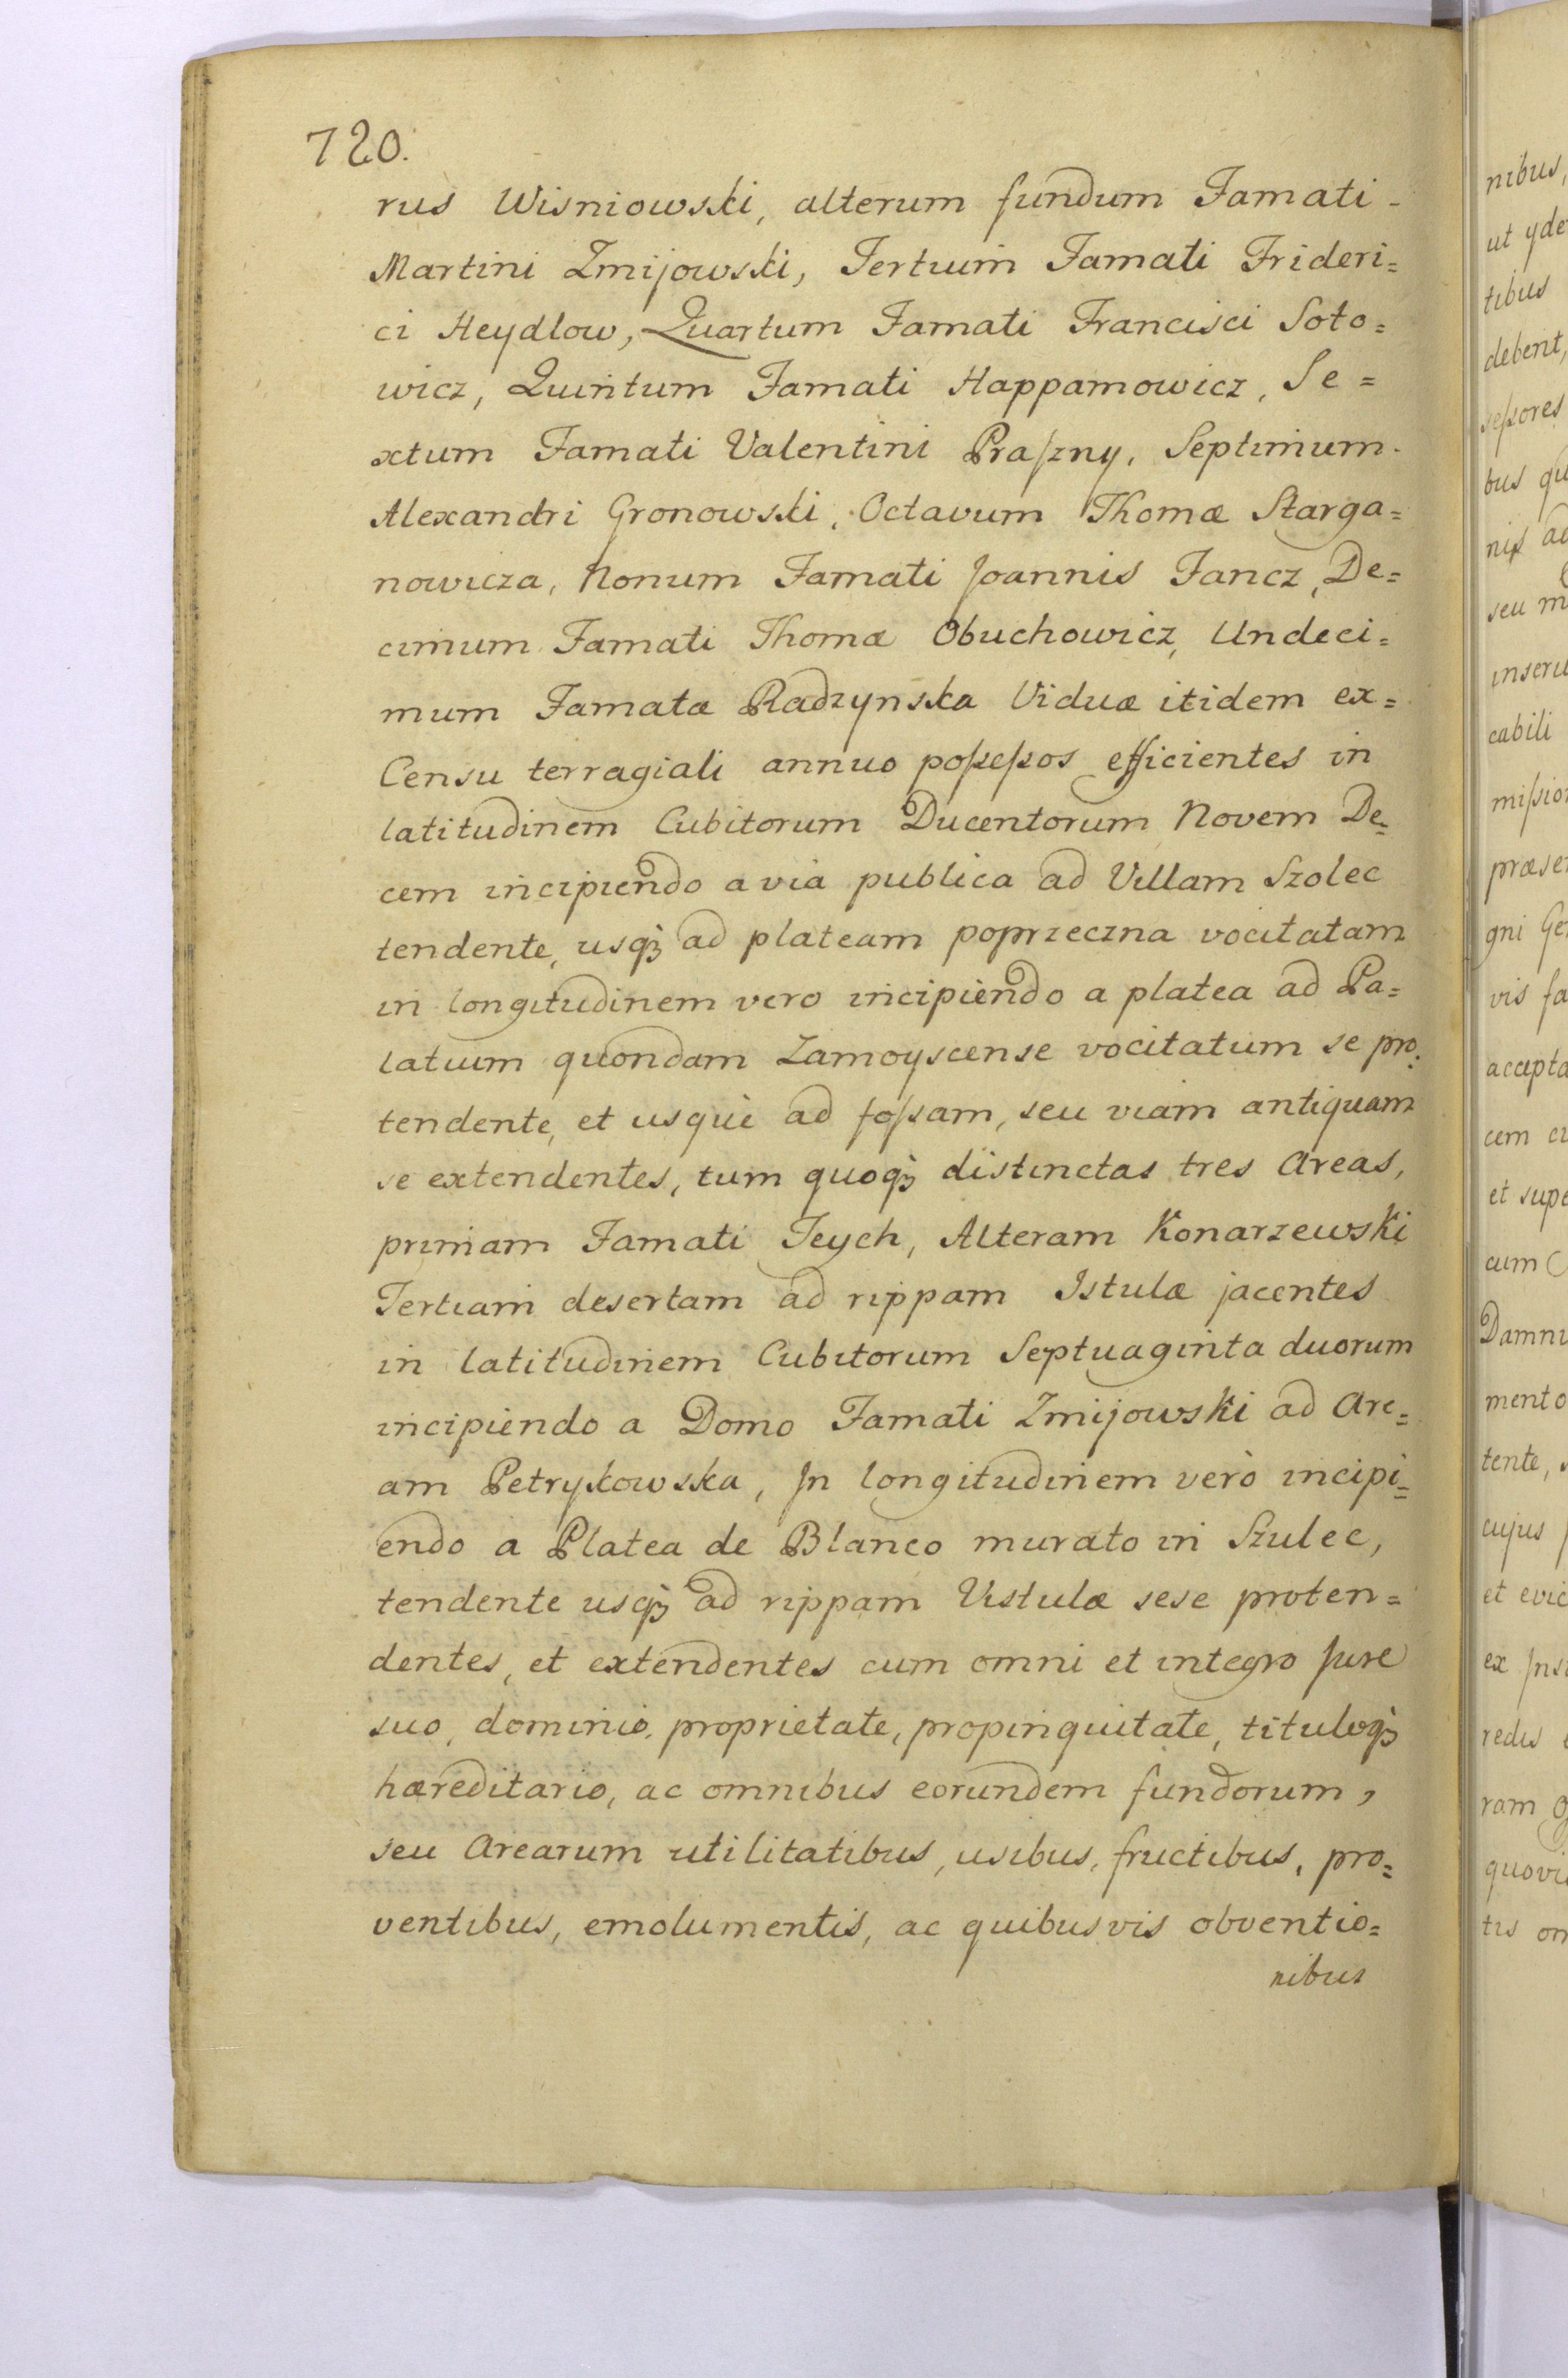 720.
rus Wisniowski, alterum fundum Famati -
Martini Zmijowski, Tertium Famati Frideri=
ci Heydlow, Quartum Famati Francisci Soto=
wicz, Quintum Famati Happamowicz, Se=
xtum Famati Valentini Praſzny, Septimum.
Alexandri Gronowski, Octavum Thomæ Starga=
nowicza, Nonum Famati Joannis Fancz, De=
cimum Famati Thomæ Obuchowicz, Undeci=
mum Famatæ Radzynska Viduæ itidem ex=
Censu terragiali annuo poſseſsos efficientes in
latitudinem Cubitorum Ducentorum Novem De=
cem incipiendo a via publica ad Villam Szolec
tendente, usq3 ad plateam poprzeczna vocitatam
in longitudinem vero incipiendo a platea ad Pa=
latium quondam Zamoyscense vocitatum se pro=
tendente, et usque ad foſsam, seu viam antiquam
se extendentes, tum quoq3 distinctas tres Areas,
primam Famati Teych, Alteram Konarzewski
Tertiam desertam ad rippam Istulæ jacentes
in latitudinem Cubitorum Septuaginta duorum
incipiendo a Domo Famati Zmijowski ad Are=
am Petrykowska, In longitudinem verò incipi=
endo a Platea de Blanco murato in Szulec,
tendente usq3 ad rippam Vistulæ sese proten=
dentes, et extendentes cum omni et integro Jure
suo, dominio, proprietate, propinquitate, tituloq3
hæreditario, ac omnibus eorundem fundorum,
seu Arearum utilitatibus, usibus, fructibus, pro=
ventibus, emolumentis, ac quibusvis obventio=
nibus
nibus,
ut yde
tibus
debent,
seſsores
bus qu
nis ad
seu m
inseru
cabili
miſsio
præse
gni Ge
vis fa
accepta
cem cu
et supe
cum
Damni
mento
tente,
cujus
et evic
ex Ins
redis
ram
quovi
tis om